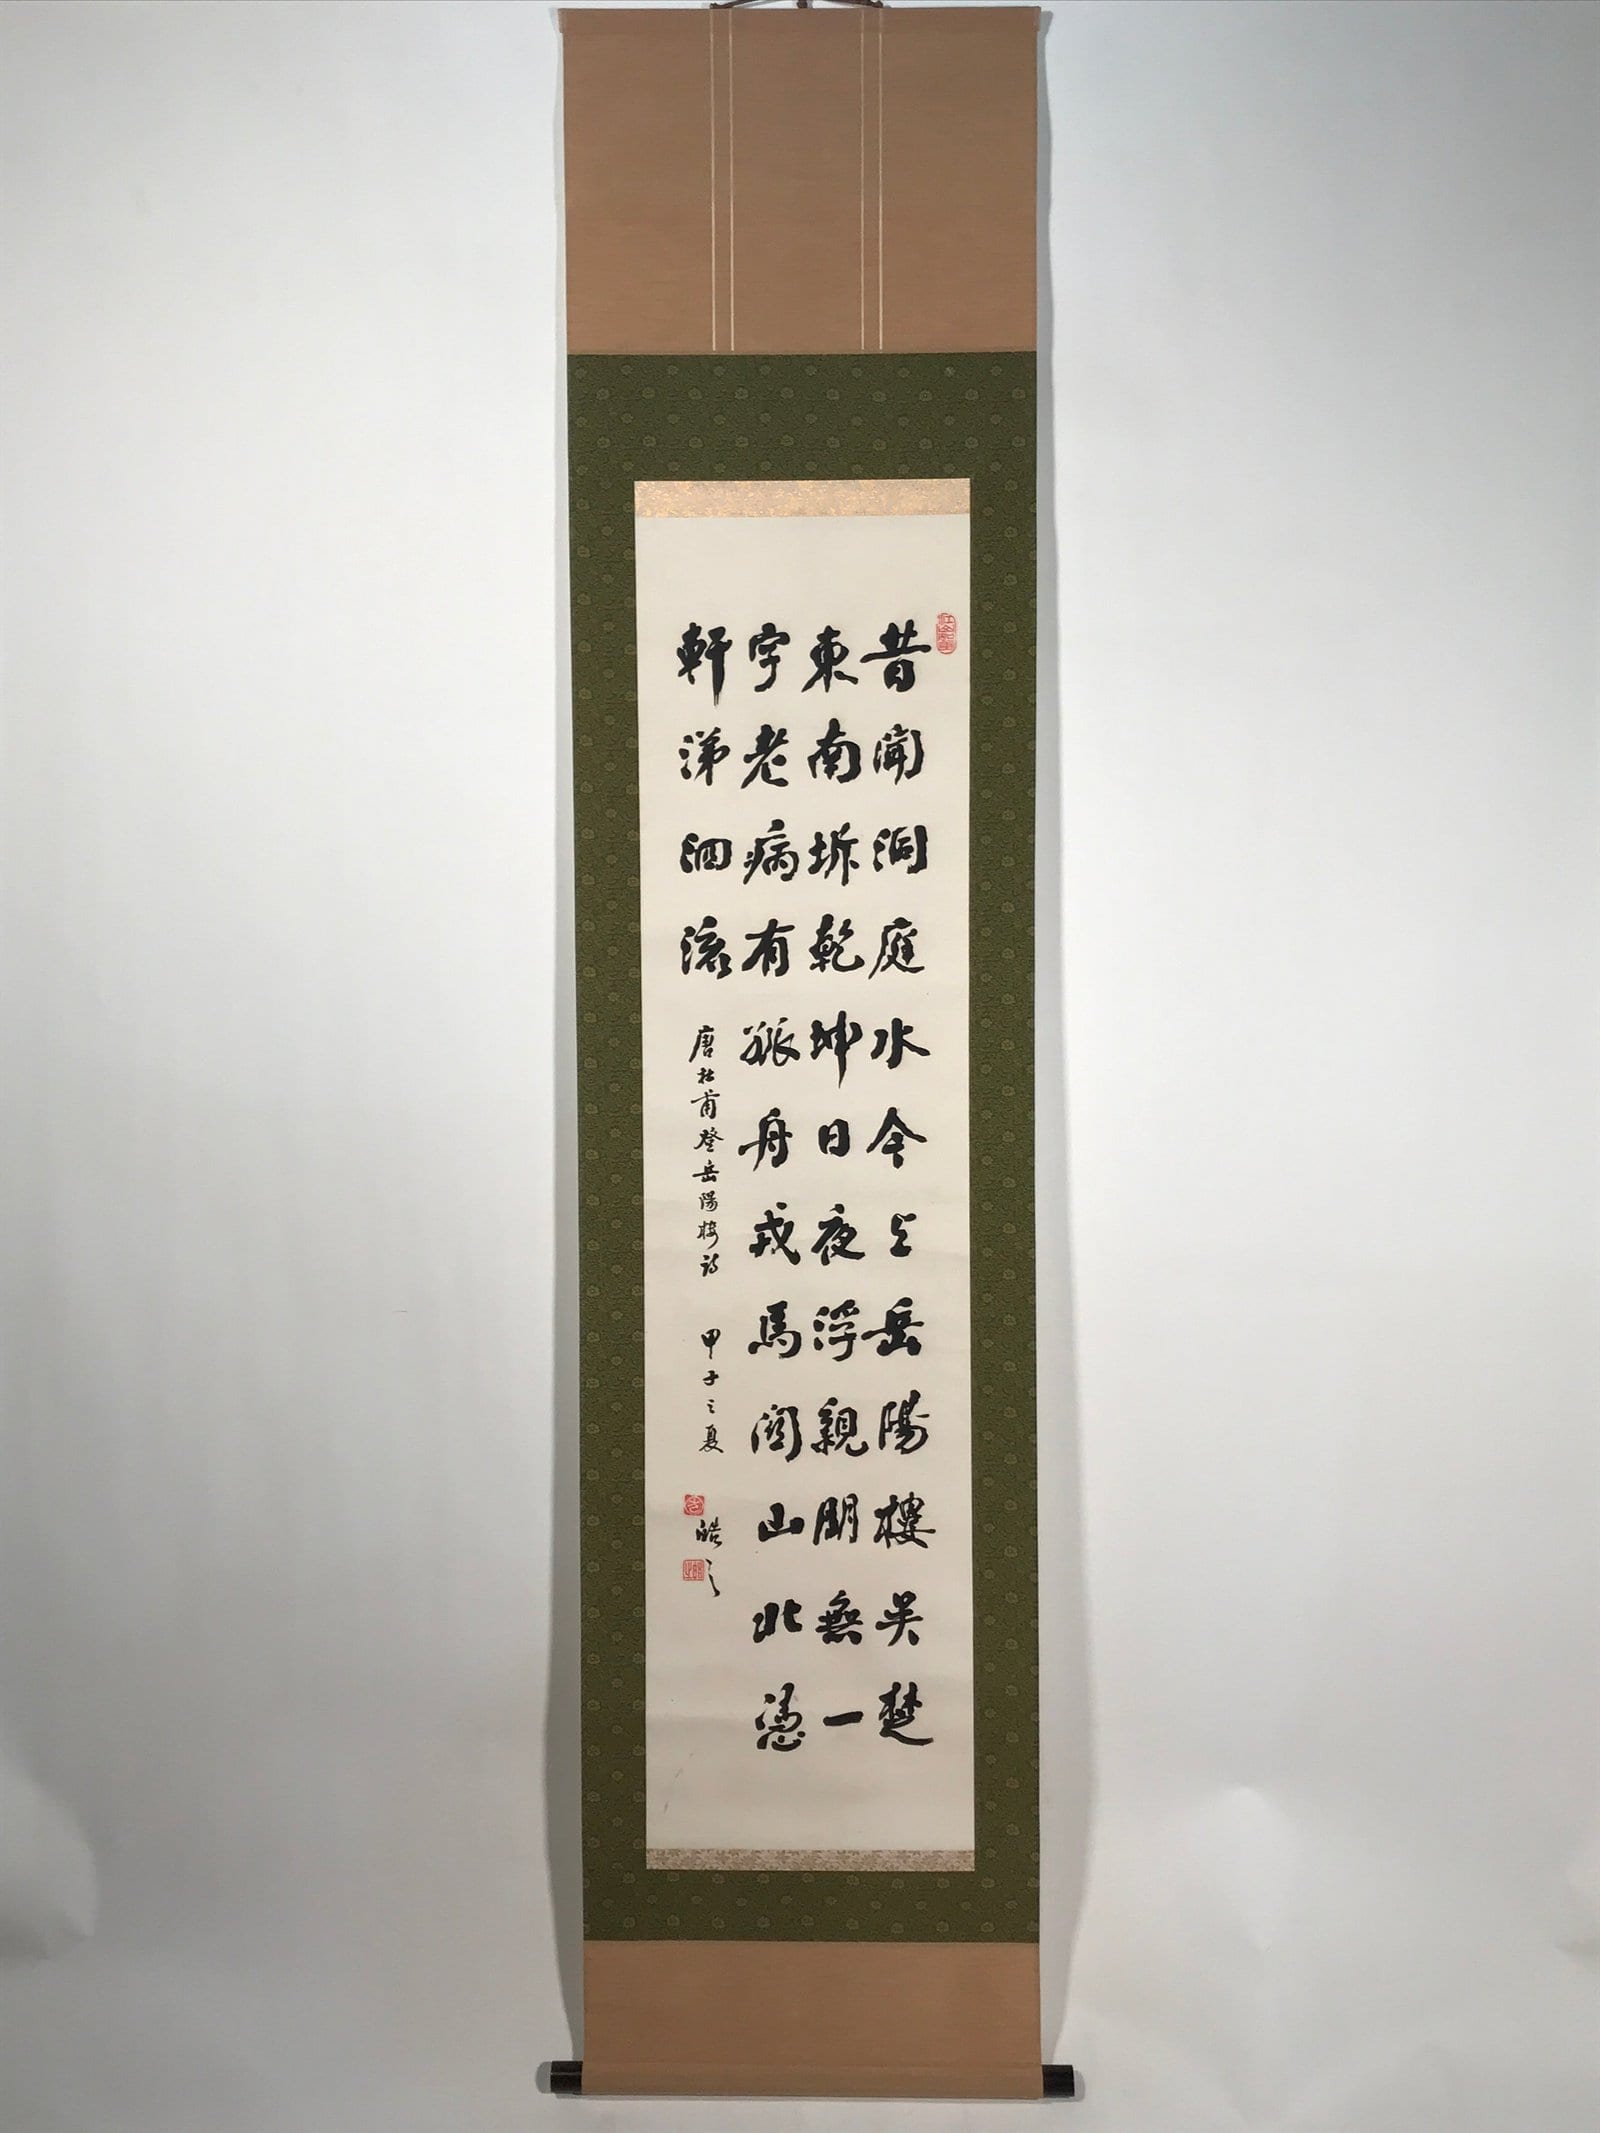 昔聞洞庭水今上岳陽樓吳楚
東南坼乾坤日夜浮親朋無一
字老病有孤舟戎馬關山北憑
軒涕泗流
唐杜甫登岳陽樓詩 甲子之夏 皓之